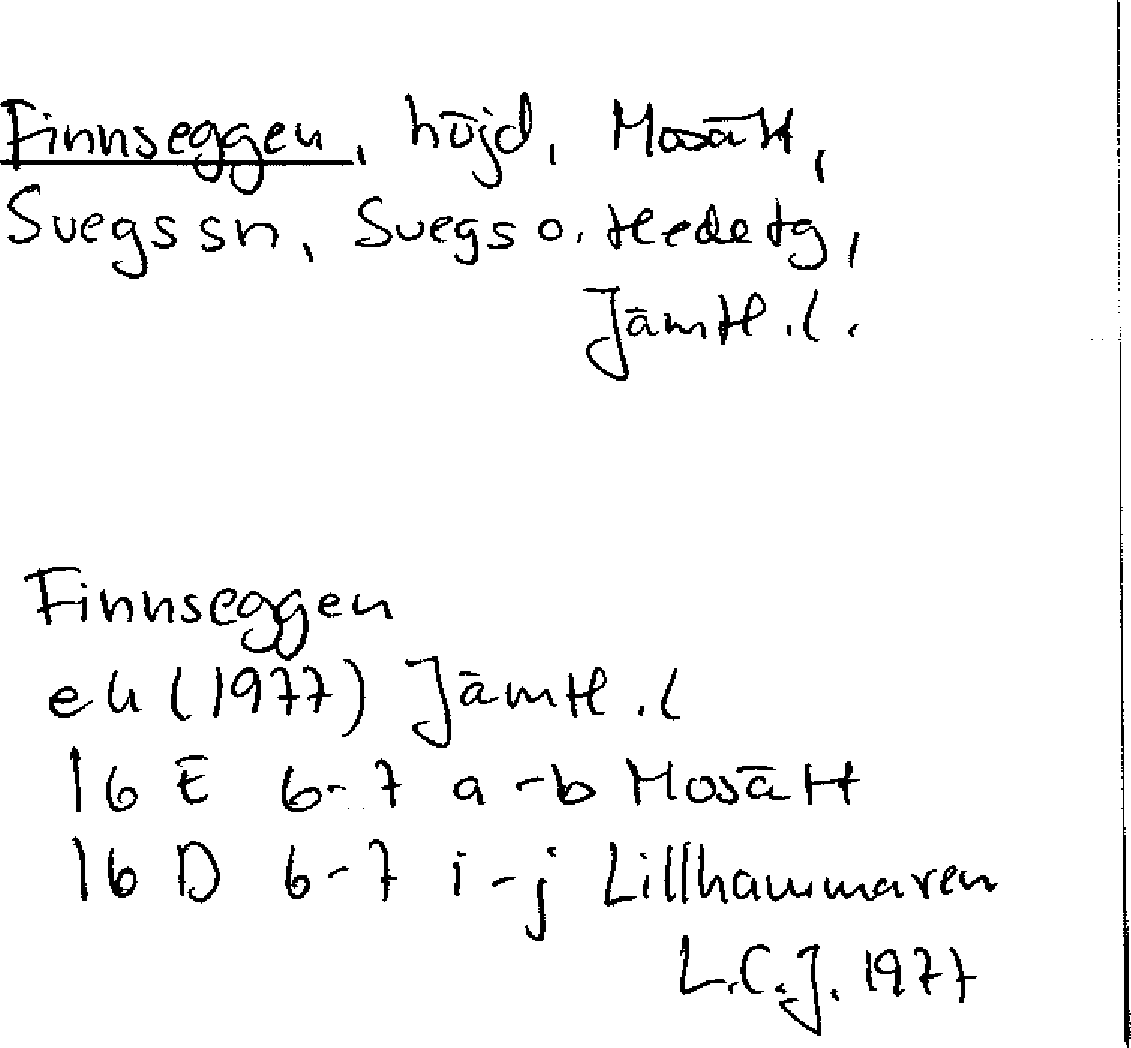 Finnseggen, höjd, Mosätt,
Svegs sn, Svegs o. Hede tg,
Jämtl.l.
Finnseggen
ek (1977) Jämtl.l
16 E 6-7 a-b Mosätt
16 D 6-7 i-j Lillhammaren
L.C.J. 1977